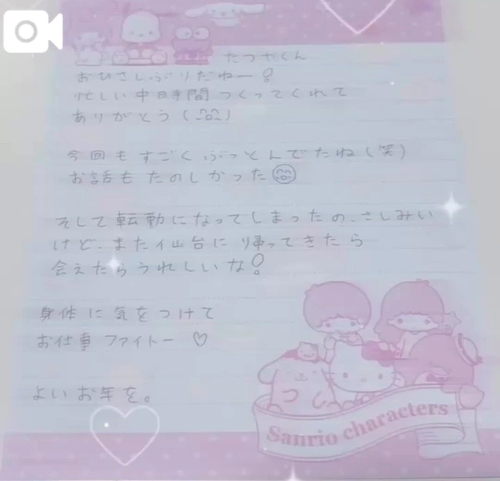 たつやくん
おひさしぶりだねー!
忙しい中日時間つくってくれて
ありがとう(^_^)
今回もすごくぶっとんでたね(笑)
お話もたのしかった
そして転勤になってしまったの、さしみい
けど、また仙台に帰ってきたら
会えたらうれしいな!
身体に気をつけて
お仕事ファイトー♡
よいお年を。
Sanrio characters